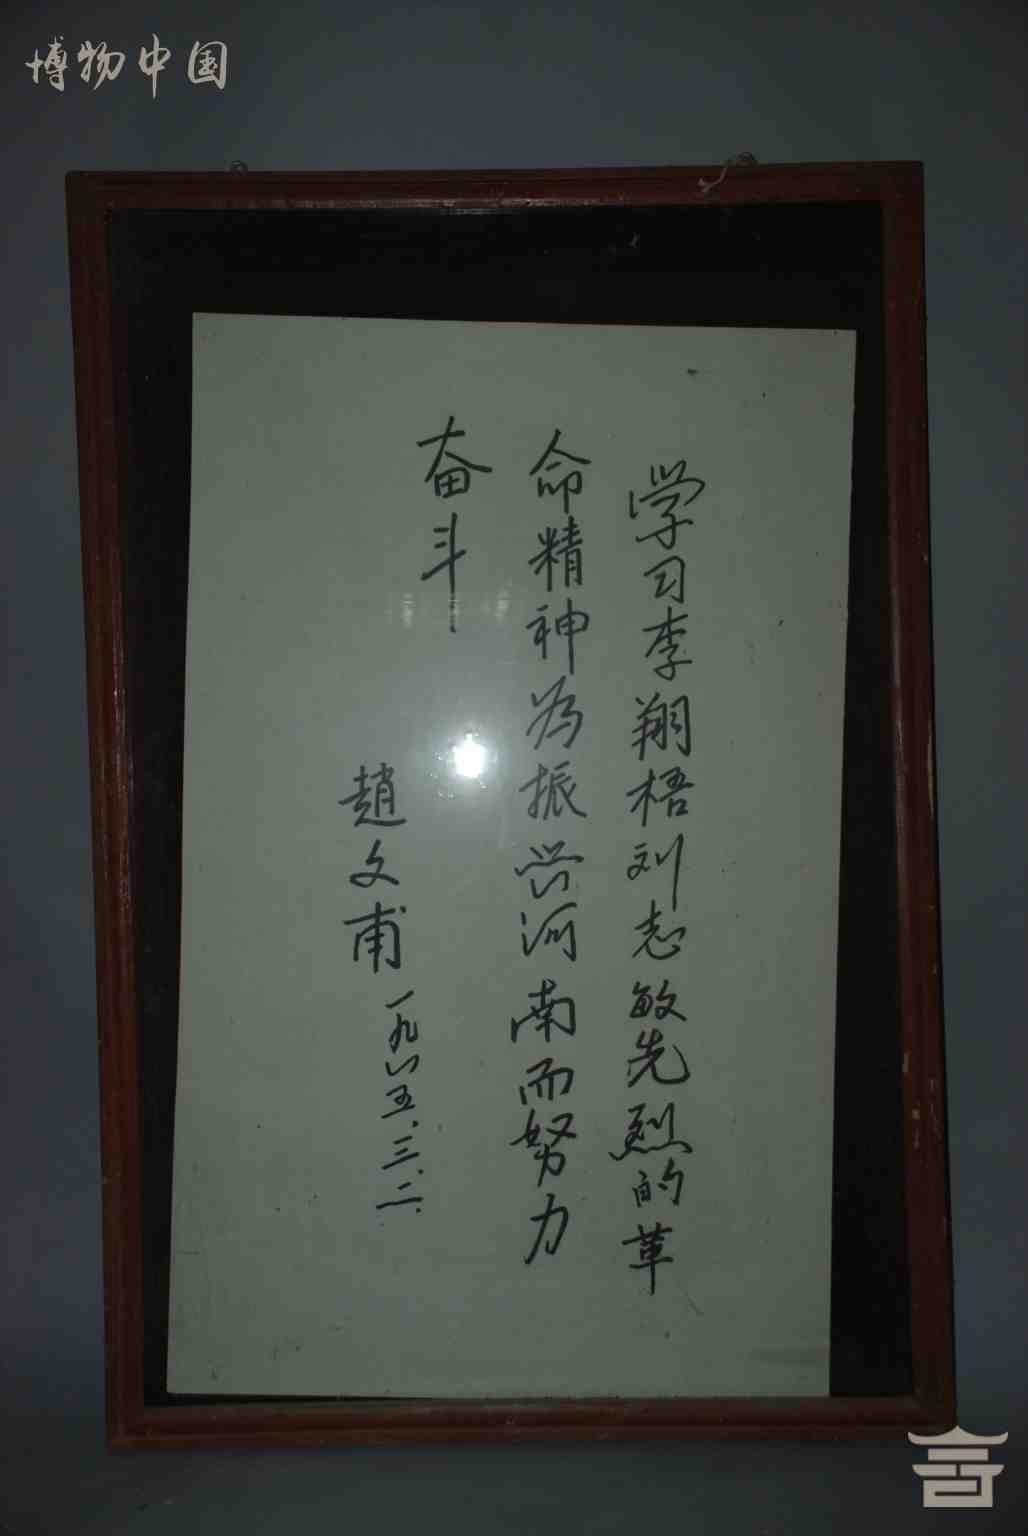 博物中国
学习李翔梧刘志敏先烈的革
命精神为振兴河南而努力
奋斗
趙文甫
一九八五.三.二.